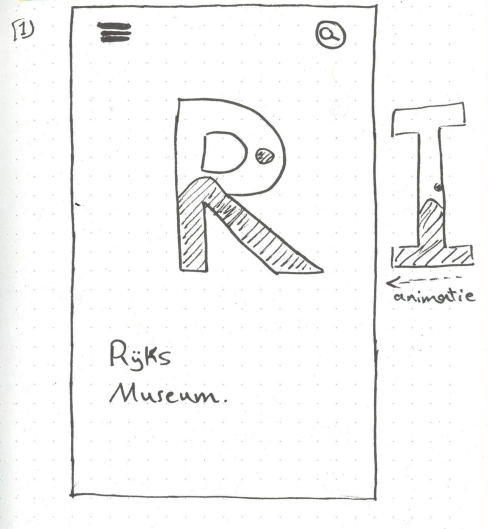 [1]
R I
animatie
Rijks
Museum.